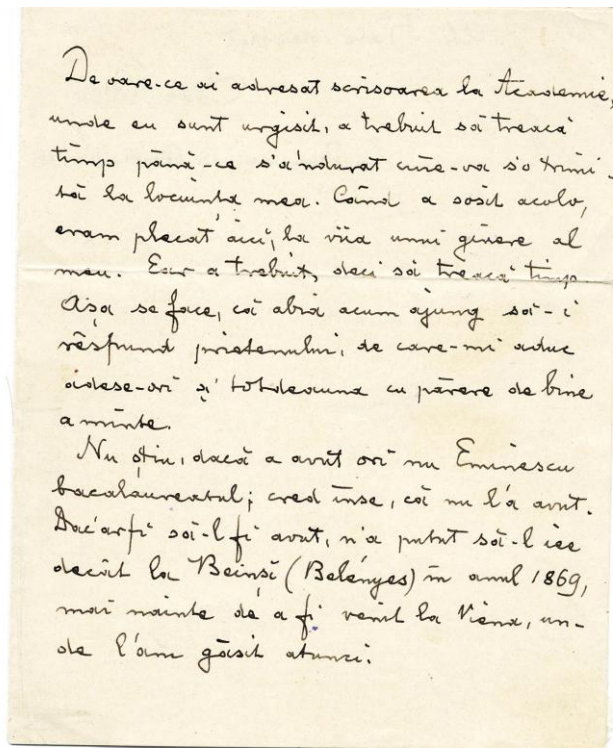 De oare-ce ai adresat scrisoarea la Academie,
unde eu sunt urgisit, a trebuit să treacă
timp până-ce s'a'ndurat cine-va s'o trimi-
tă la locuința mea. Când a sosit acolo,
eram plecat aici, la viia unui ginere al
meu. Ear a trebuit, deci să treacă timp.
Așa se face, că abia acum ajung să-i
răspund prietenului, de care-mi aduc
adese-ori și totdeauna cu părere de bine
aminte.
Nu știu, dacă a avut ori nu Eminescu
bacalaureatul; cred inse, că nu l'a avut.
Dac'ar fi să-l fi avut, n'a putut să-l iee
decât la Beinși (Belényes) in anul 1869,
mai nainte de a fi venit la Viena, un-
de l'am găsit atunci.